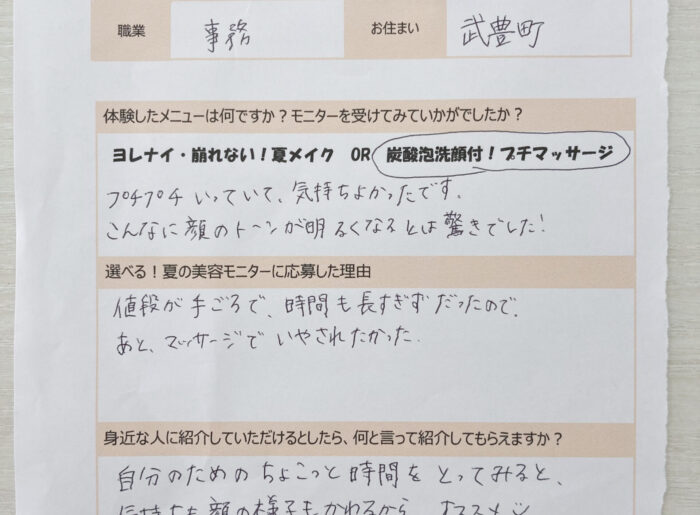 職業 事務 お住まい 武豊町
体験したメニューは何ですか？モニターを受けてみていかがでしたか？
ヨレナイ・崩れない！夏メイク OR 炭酸泡洗顔付！プチマッサージ
プチプチいっていて、気持ちよかったです。
こんなに顔のトーンが明るくなるとは驚きでした！
選べる！夏の美容モニターに応募した理由
値段が手ごろで、時間も長すぎずだったので。
あと、マッサージでいやされたかった。
身近な人に紹介していただけるとしたら、何と言って紹介してもらえますか？
自分のためのちょこっと時間をとってみると、
気持ちも顔の様子もかわるから、オススメ